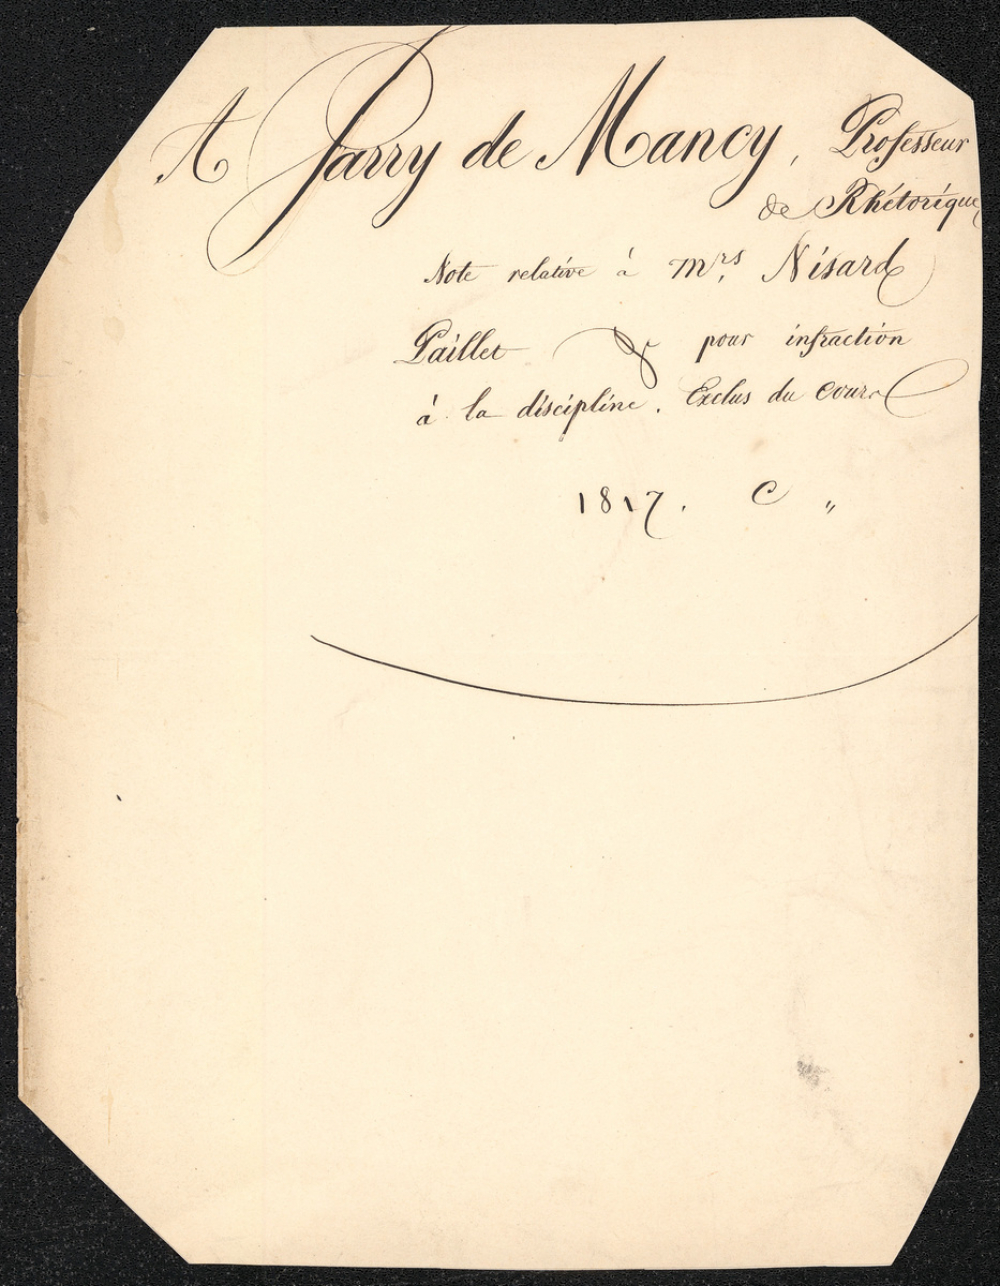 A Jarry de Mancy, Professeur
de Rhétorique
Note relative à Mrs. Nisard
Paillet & pour infraction
à la discipline. Exclus du Cours
1817. C "